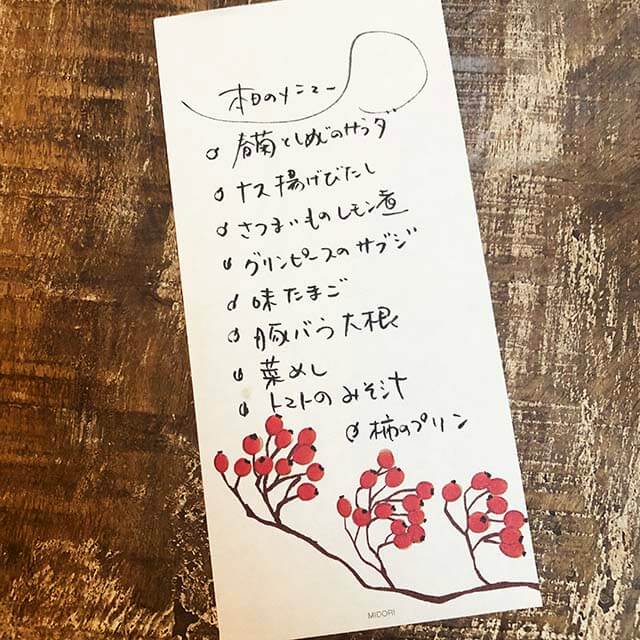 本日のメニュー
春菊としめじのサラダ
ナス揚げびたし
さつまいものレモン煮
グリンピースのサブジ
味たまご
豚バラ大根
菜めし
トマトのみそ汁
柿のプリン
MIDORI